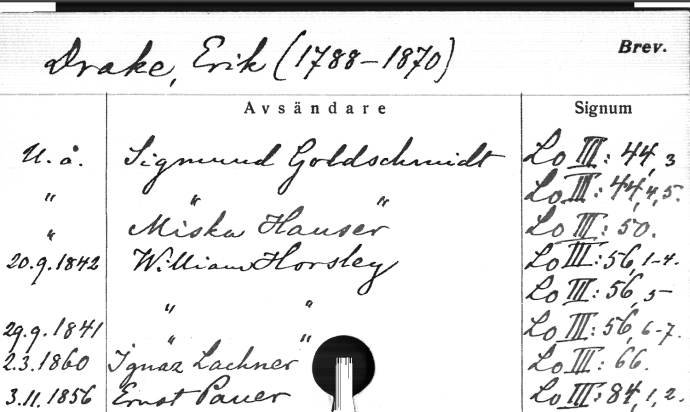 Drake, Erik (1788-1870) Brev.
Avsändare Signum
U. å. Sigmund Goldschmidt Lo III: 44, 3
" " " Lo III: 44, 4, 5.
" Miska Hauser Lo III: 50.
20.9.1842 William Horsley Lo III: 56, 1-4.
" " Lo III: 56, 5-
29.9.1841 " " Lo III: 56, 6-7.
2.3.1860 Ignaz Lachner Lo III: 66.
3.11.1856 Ernst Pauer Lo III: 84, 1, 2.